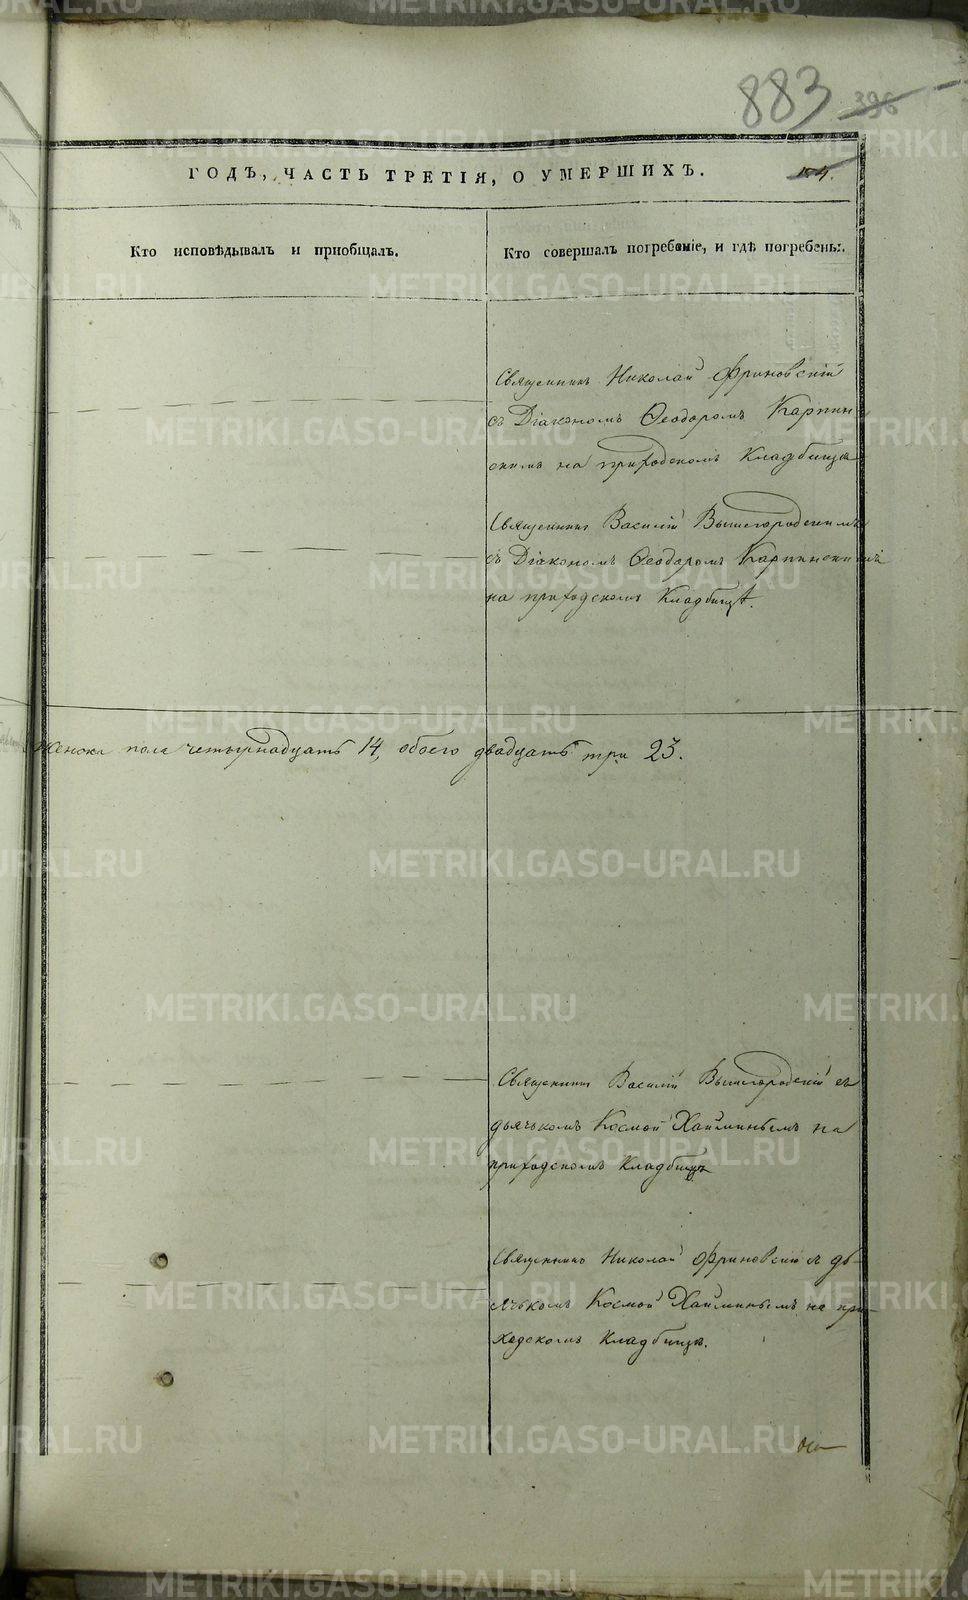 883 396
ГОДЪ, ЧАСТЬ ТРЕТІЯ, О УМЕРШИХЪ.
Кто исповѣдывалъ и пріобщалъ.
Кто совершалъ погребеніе, и гдѣ погребены.
Священникъ Николай Фриновскій
съ Діакономъ Ѳеодоромъ Карпин
скимъ на приходскомъ Кладбищѣ
Священникъ Василій Вышегородскимъ
съ Діакономъ Ѳеодоромъ Карпинскимъ
на приходскомъ Кладбищѣ.
женска пола четырнадцать 14, обоего двадцать три 23.
Священникъ Василій Вышегородскій съ
дьячькомъ Космой Хайминымъ на
приходскомъ Кладбищѣ
Священникъ Николай Фриновскій съ дь-
ячькомъ Космой Хайминымъ на при-
ходскомъ Кладбищѣ.
METRIKI.GASO-URAL.RU